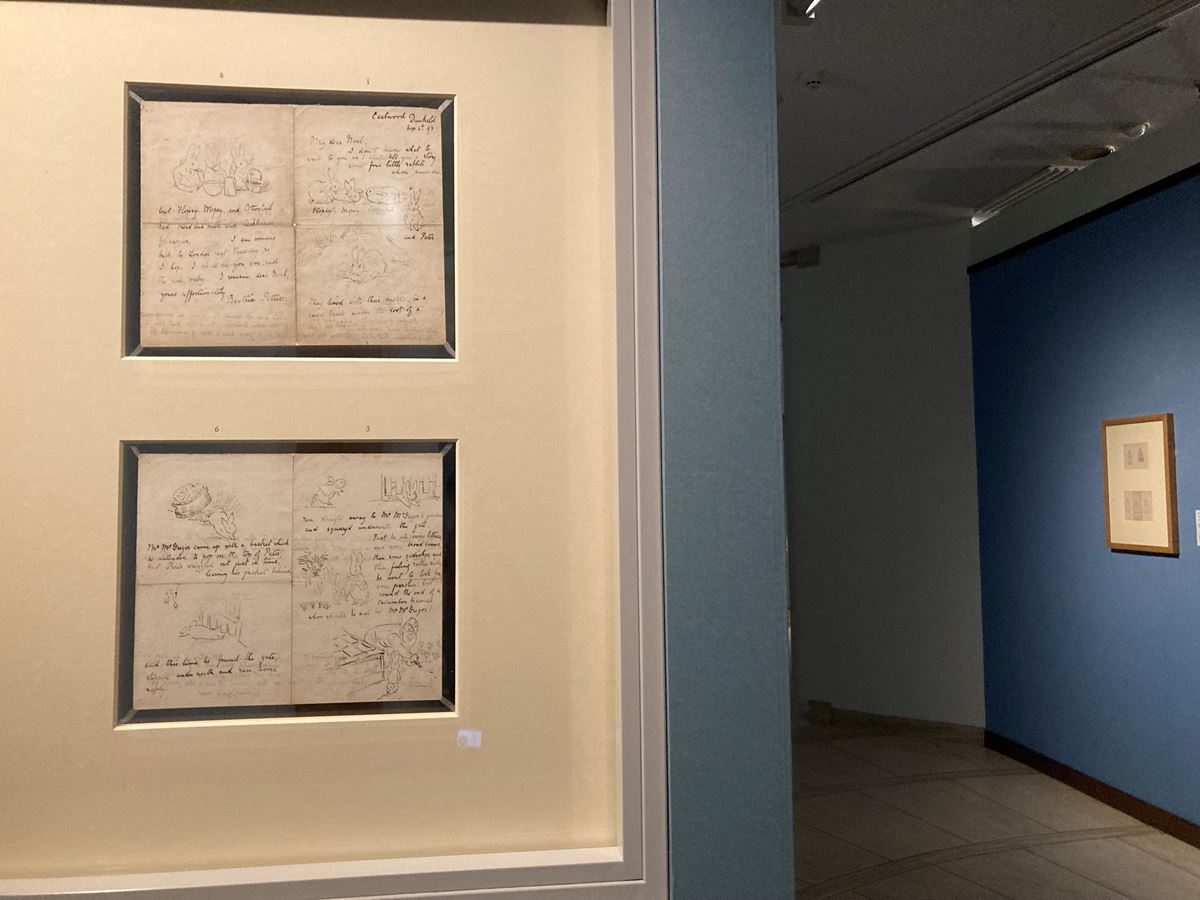 8
1
Eastwood Dunkeld
Sep 4th 93
My dear Noel,
I don't know what to
write to you, so I shall tell you a story
about four little rabbits
whose names were
Flopsy, Mopsy, Cottontail
and Peter
They lived with their mother in a
sand bank under the root of a
but Flopsy, Mopsy, and Cottontail
had bread and milk and blackberries
for supper. I am coming
back to London next Thursday, so
I hope I shall see you soon, and
the new baby. I remain, dear Noel,
yours affectionately
Beatrix Potter
6
3
Mr McGregor came up with a basket which
he intended to pop on the top of Peter,
but Peter wriggled out just in time,
leaving his jacket behind
and this time he found the gate,
slipped underneath and ran home
safely.
ran straight away to Mr McGregor's garden
and squeezed underneath the gate.
First he ate some lettuce,
and some broad beans,
then some radishes, and
then, feeling rather sick,
he went to look for
some parsley; but
round the end of a
cucumber frame
whom should he meet but Mr McGregor!